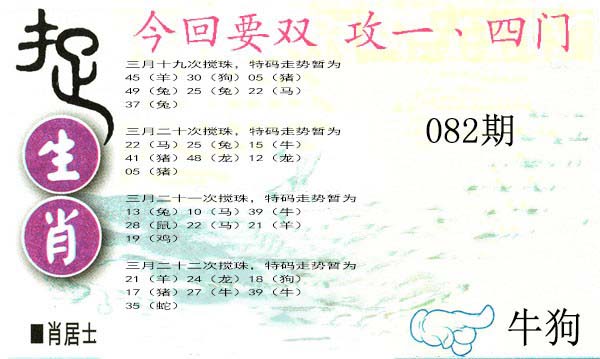 捉
生
肖
■肖居士
今回要双 攻一、四门
三月十九次搅珠，特码走势暂为
45（羊）30（狗）05（猪）
49（兔）25（兔）22（马）
37（兔）
三月二十次搅珠，特码走势暂为
22（马）25（兔）15（牛）
41（猪）48（龙）12（龙）
05（猪）
三月二十一次搅珠，特码走势暂为
13（兔）10（马）39（牛）
28（鼠）22（马）21（羊）
19（鸡）
三月二十二次搅珠，特码走势暂为
21（羊）24（龙）18（狗）
17（猪）27（牛）39（牛）
35（蛇）
082期
牛狗